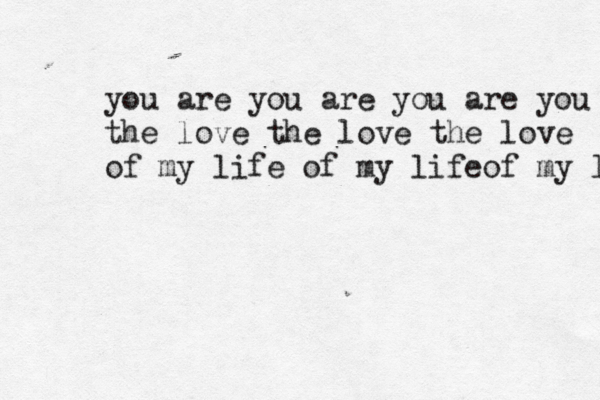 you are you are you are you
the love the love the love
of my life of my lifeof my l